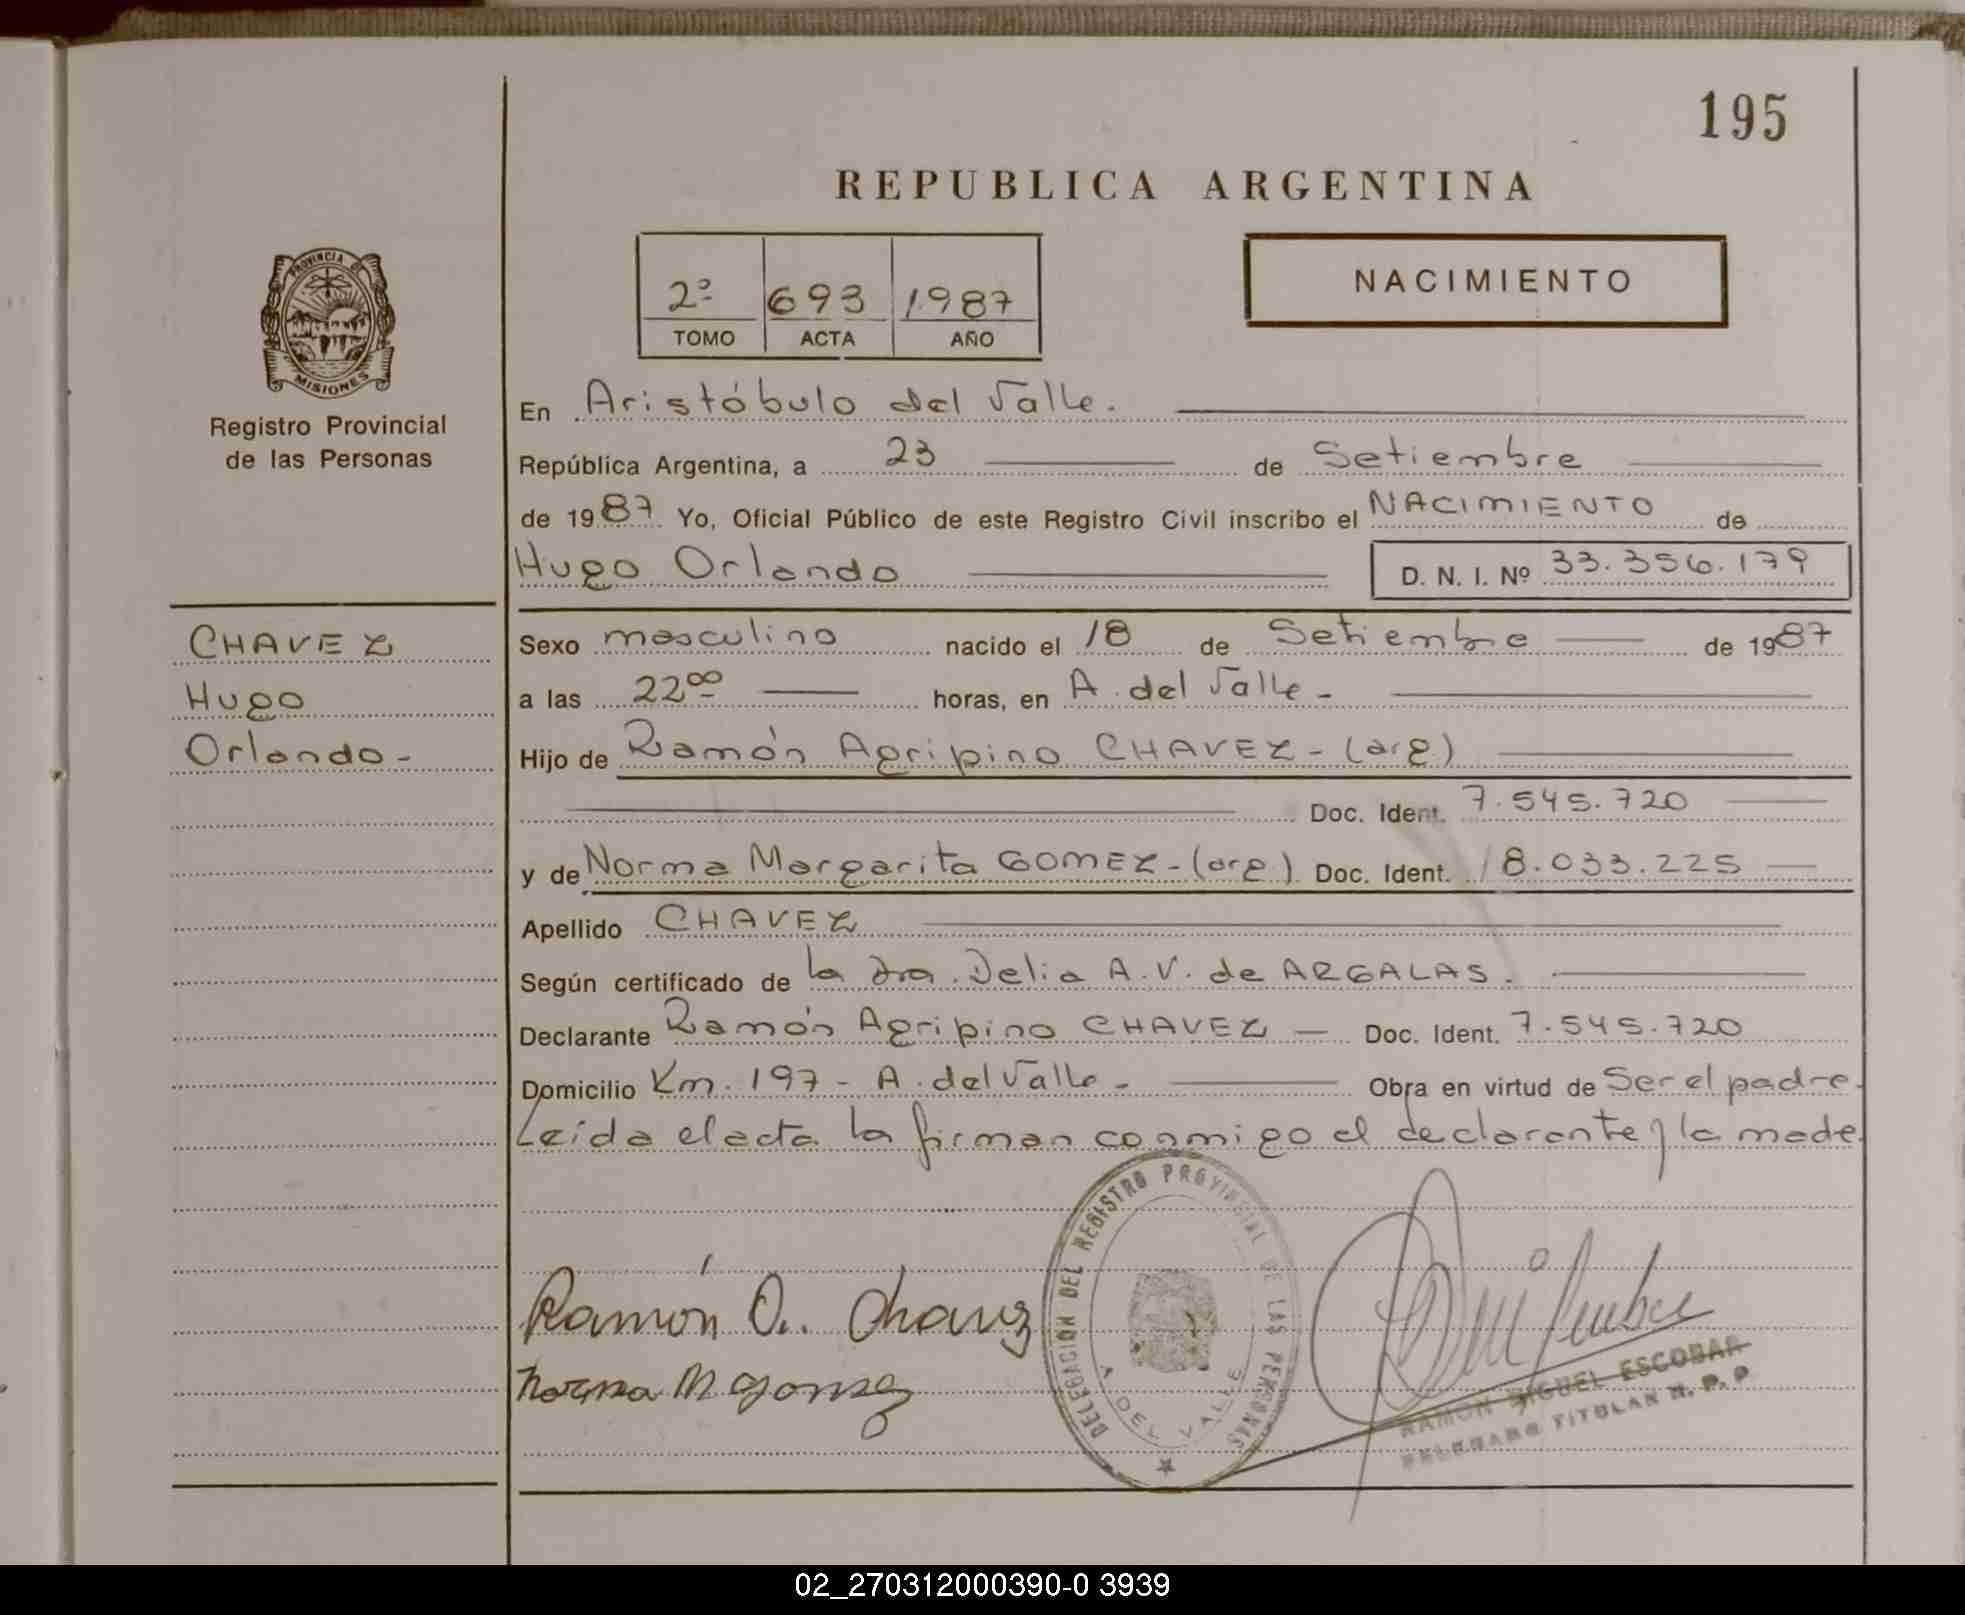 195
REPUBLICA ARGENTINA
PROVINCIA DE
MISIONES
Registro Provincial
de las Personas
2º 693 1987
TOMO ACTA AÑO
NACIMIENTO
En Aristóbulo del Valle.
República Argentina, a 23 de Setiembre
de 1987 Yo, Oficial Público de este Registro Civil inscribo el NACIMIENTO de
Hugo Orlando D. N. I. Nº 33.356.179
CHAVEZ
Hugo
Orlando-
Sexo masculino nacido el 18 de Setiembre de 1987
a las 22⁰⁰ horas, en A. del Valle-
Hijo de Ramón Agripino CHAVEZ-(arg)
Doc. Ident. 7.545.720
y de Norma Margarita GOMEZ-(arg) Doc. Ident. 18.033.225
Apellido CHAVEZ
Según certificado de la Dra. Delia A.V. de ARGALAS.
Declarante Ramón Agripino CHAVEZ Doc. Ident. 7.545.720
Domicilio Km. 197- A. del Valle- Obra en virtud de Ser el padre.
Leida el acta la firman conmigo el declarante y la made.
Ramón A. Chavez
Norma M gomez
DELEGACIÓN DEL REGISTRO PROVINCIAL DE LAS PERSONAS
A DEL VALLE
RAMON MIGUEL ESCOBAR
DELEGADO TITULAR R. P. P.
02_270312000390-0 3939